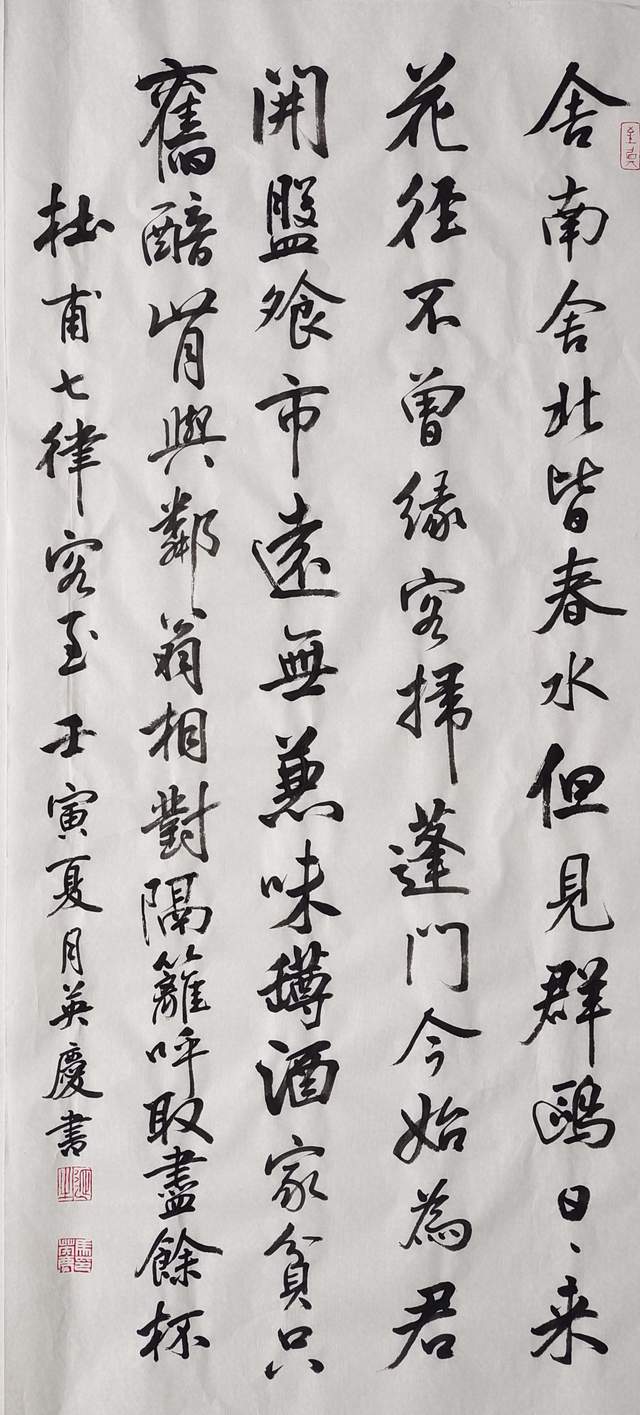 舍南舍北皆春水但見群鷗日、来
花徑不曾緣客掃蓬門今始為君
開盤飧市遠無兼味罇酒家貧只
舊醅肯與鄰翁相對隔籬呼取盡餘杯
杜甫七律客至壬寅夏月英慶書